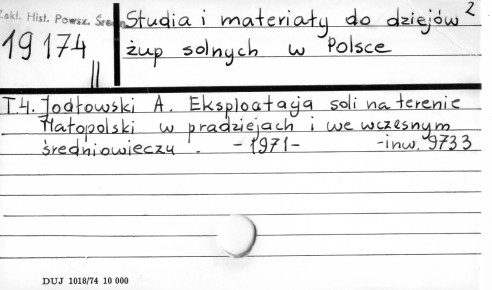 Zakł. Hist. Powsz. Śred
19 174
II
Studia i materiały do dziejów 2
żup solnych w Polsce
T.4. Jodłowski A. Eksploatacja soli na terenie
Małopolski w pradziejach i we wczesnym
średniowieczu. -1971- -inw. 9733
DUJ 1018/74 10 000